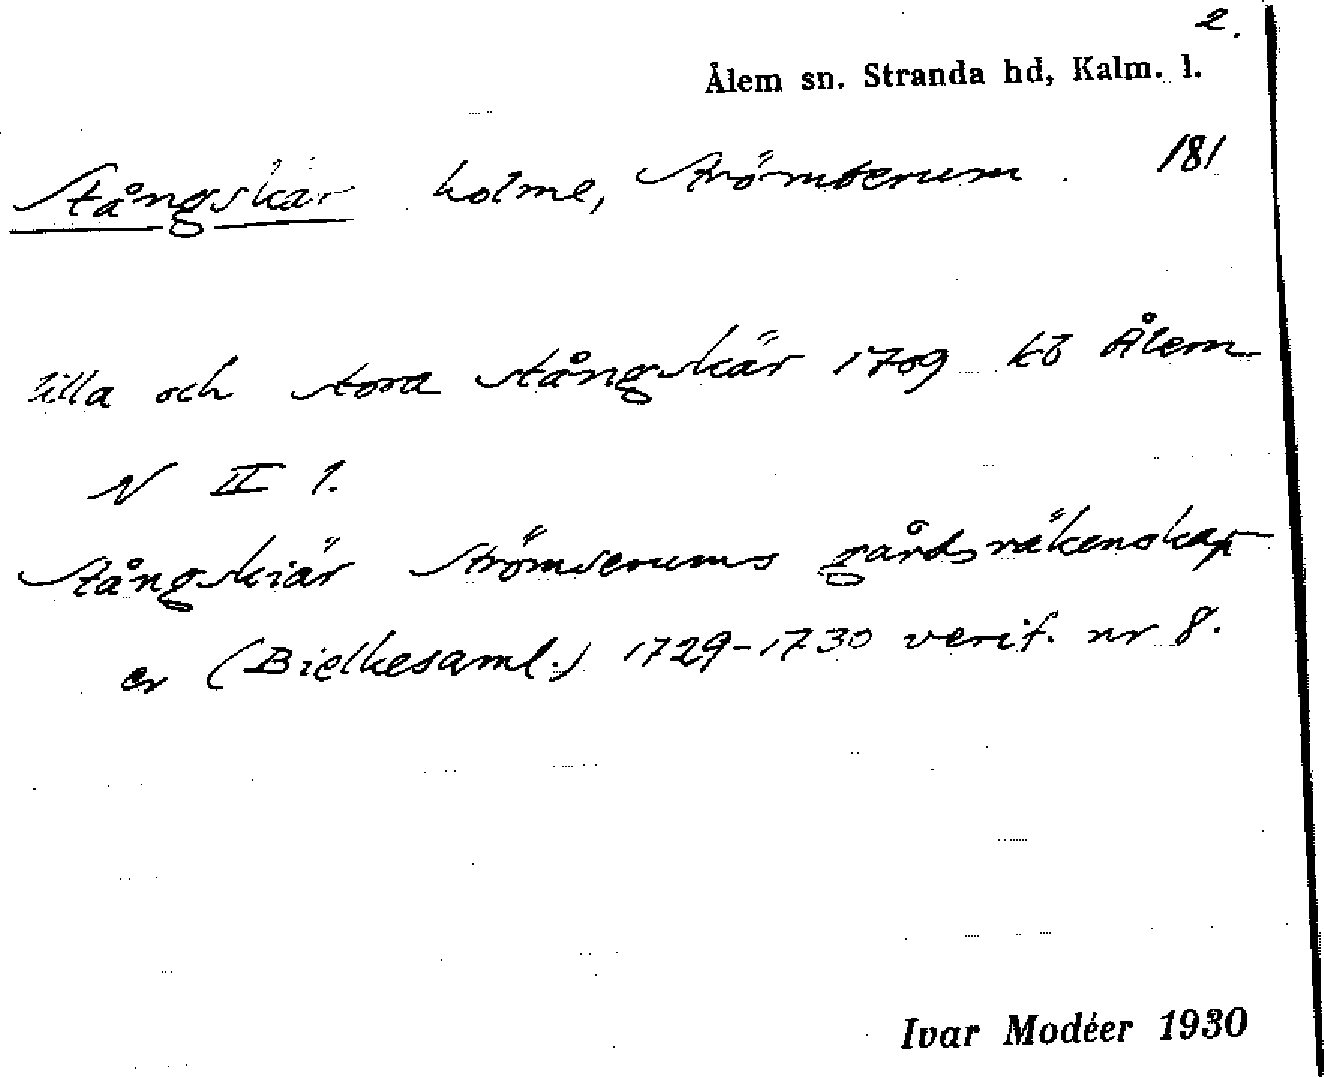 2.
Ålem sn. Stranda hd, Kalm. l.
Stångskär holme, Strömserum. 181
lilla och stora Stångskär 1709 kb Ålem
N II 1.
Stångskiär Strömserums gårdsräkenskap
er (Bielkesaml.) 1729-1730 verif. nr 8.
Ivar Modéer 1930